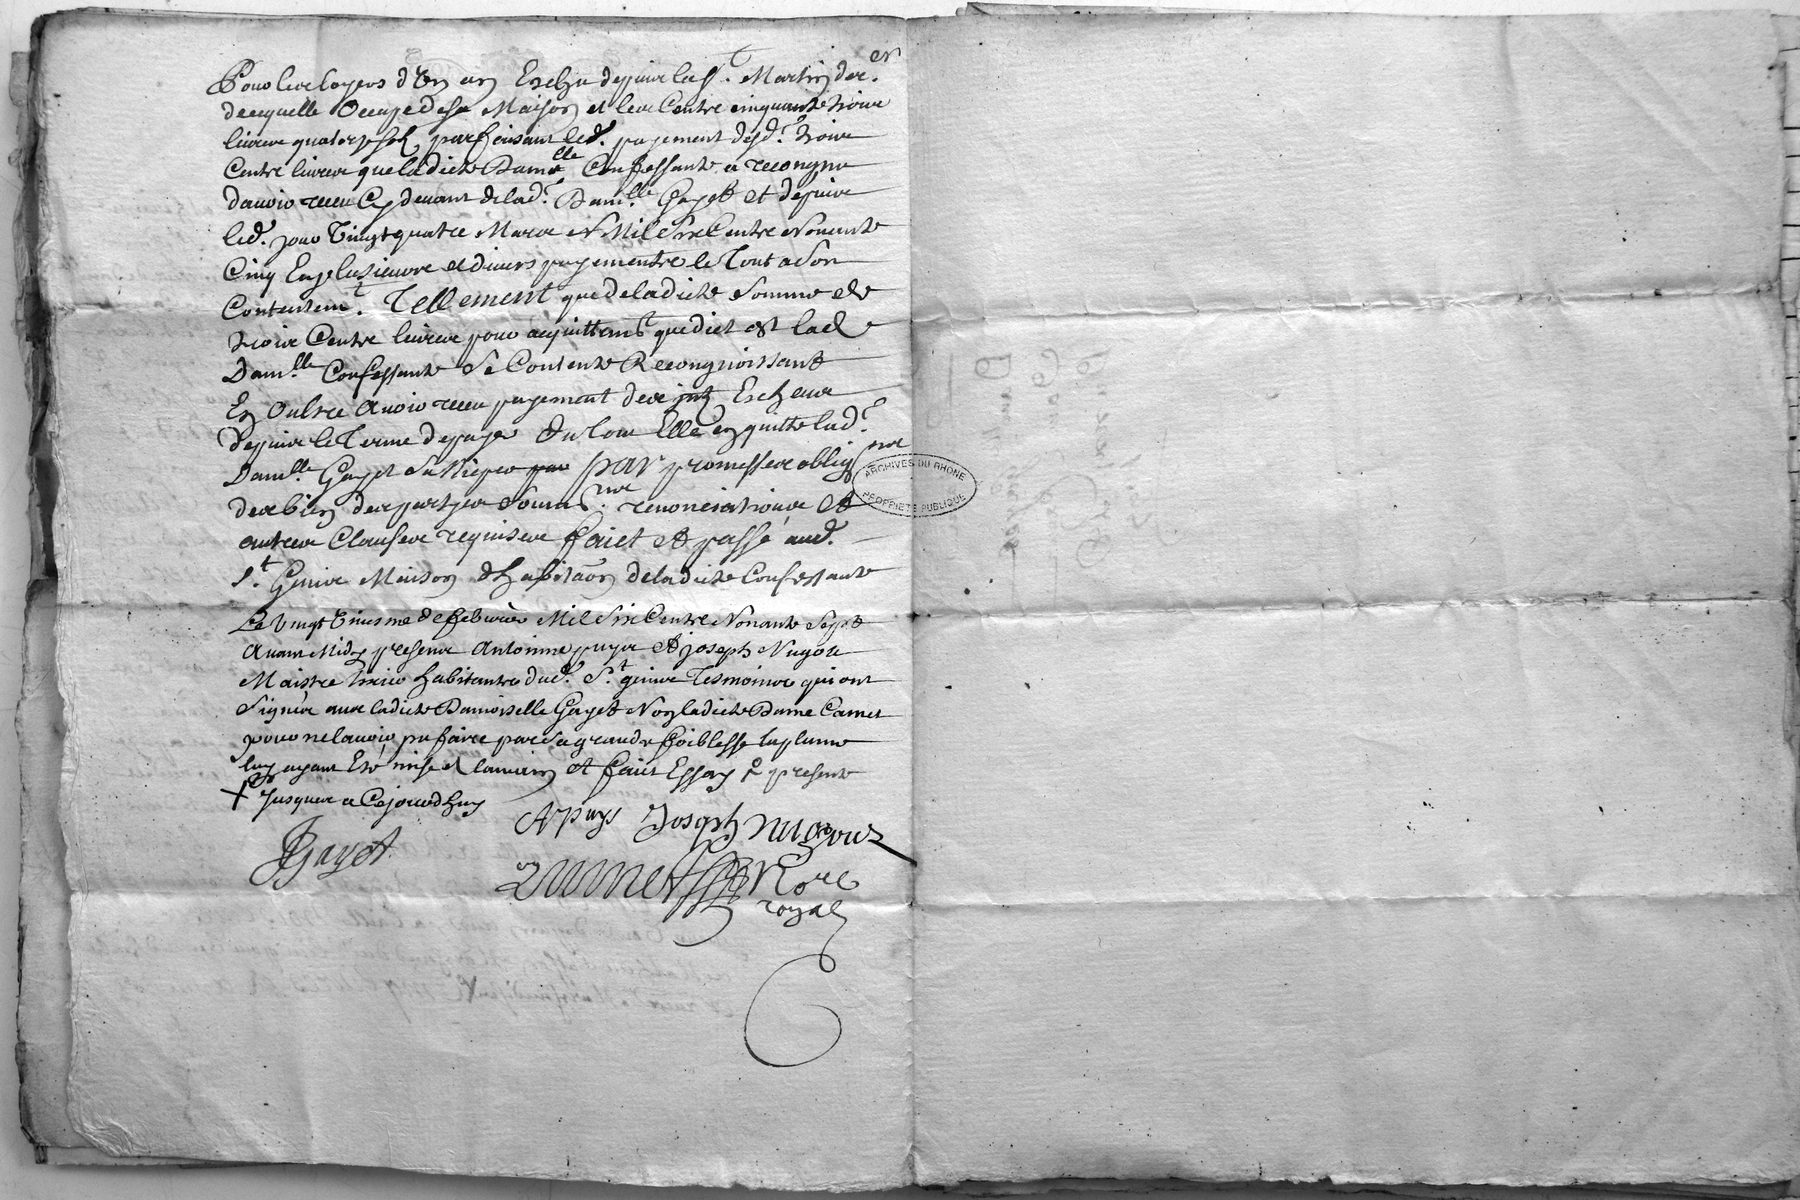 Pour les loyers d'Un an Escheu depuis la St. Martin der.
de ce quelle Occupe de sa Maison et les Cents cinquante trois
livres quatorze sols parfaisant led. payement desd. trois
Cents livres que ladicte Damlle Confessante a recongnu
dauoir receu Cy deuant de lad. Damlle Gayot et depuis
led. jour Vingt quatre Mars Mil Six Cents Nonante
Cinq En plusieurs et diuers payements le Tout a Son
Contentemt. Tellement que de ladicte Somme de
trois Cents liures pour acquittemt que dict est lad
Damlle Confessante Se Contente Recongnoissant
En Oultre Auoir receu payement des intz Escheus
depuis le Terme de payer Elle en quitte lad.
Damlle Gayot par promesses oblig
des biens des parties Soumis renonciations Et
autres Clauses requises faict Et passé aud.
St. Genis Maison d'habitaon de ladicte Confessante
Le Vingt Uniesme de febvrier Mil Six Cents Nonante Sept
Auant Midy presens Antoinne puys Et joseph Nugoz
Maistre habitants dud. St. genis Tesmoins qui ont
Signés auec ladicte Damoiselle Gayot Non ladicte Dame Camet
pour ne lauoir pu faire par Sa grande foiblesse la plume
luy ayant Esté mise a la main Et faict Essay presente
+ Jusques a Cejourdhuy
A Puys Joseph nugoz
JGayot
Nore
royal
ARCHIVES DU RHONE
PROPRIETE PUBLIQUE